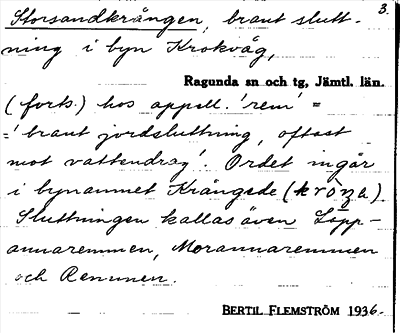 3.
Storsandkrången, brant slutt-
ning i byn Krokvåg,
Ragunda sn och tg, Jämtl. län.
(forts.) hos appell. 'rem' =
=' brant jordsluttning, oftast
mot vattendrag'. Ordet ingår
i bynamnet Krångede (
Sluttningen kallas även Lopp-
annaremmen, Morannaremmen
och Remmen.
BERTIL FLEMSTRÖM 1936.